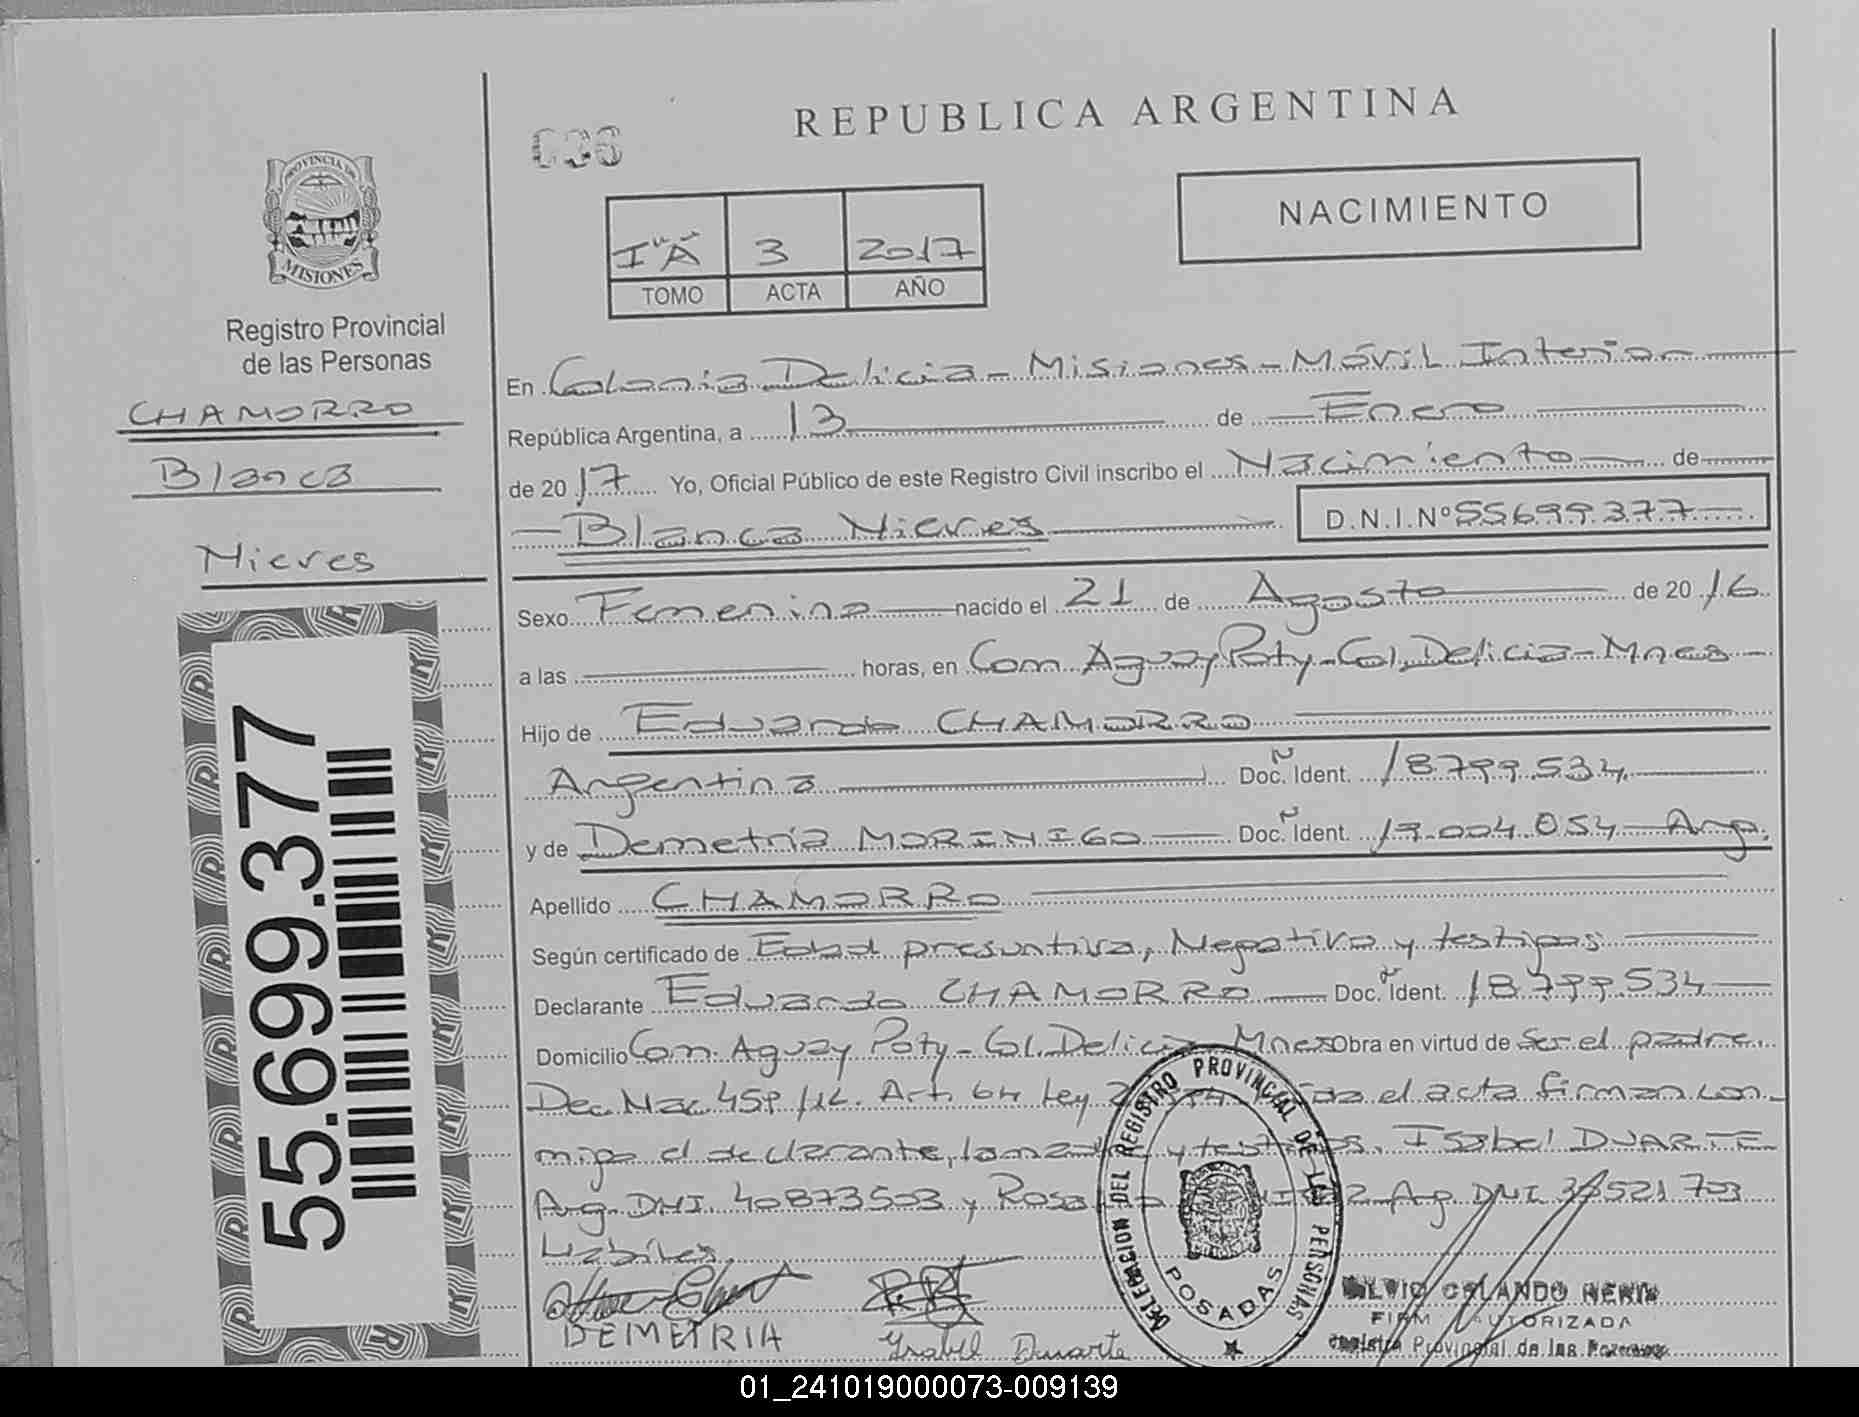 REPUBLICA ARGENTINA
036
NACIMIENTO
I "A" 3 2017
TOMO ACTA AÑO
PROVINCIA DE
MISIONES
Registro Provincial
de las Personas
CHAMORRO
Blanca
Nieves
55.699.377
En Colonia Delicia - Misiones - Móvil Interior
República Argentina, a 13 de Enero
de 2017 Yo, Oficial Público de este Registro Civil inscribo el Nacimiento de
Blanca Nieves D.N.I.Nº 55699377
Sexo Femenino nacido el 21 de Agosto de 2016
a las horas, en Com. Aguay Poty - Col. Delicia - Mnes
Hijo de Eduardo CHAMORRO
Argentina Doc. Ident. 18799.534
y de Demetria MORINIGO Doc. Ident. 19.004.054 Arg.
Apellido CHAMORRO
Según certificado de Edad presuntiva, Negativo y testigos
Declarante Eduardo CHAMORRO Doc. Ident. 18799.534
Domicilio Com. Aguay Poty - Col. Delicia Mnes Obra en virtud de Ser el padre.
Dec. Nac 459/12. Art. 64 Ley el acta firman con-
migo el declarante, la madre y testigos. Isabel DUARTE
Arg. DNI. 40873503 y Arg DNI
Hábiles.
DEMETRIA
Ysabel Duarte
DELEGACION DEL REGISTRO PROVINCIAL DE LAS PERSONAS
POSADAS
SILVIO ORLANDO
FIRMA AUTORIZADA
Registro Provincial de las Personas
01_241019000073-009139